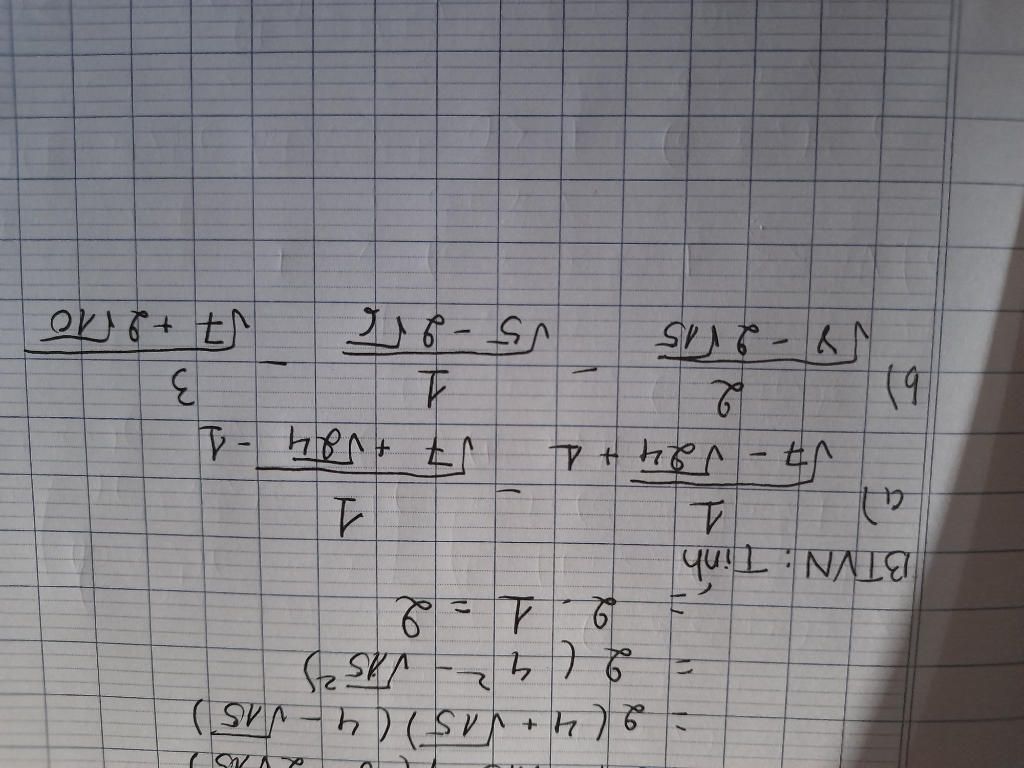 = 2 (4 + √15) (4 - √15)
= 2 (4² - √15²)
= 2 . 1 = 2
BTVN : Tính
a) 1/(√(7 - √24) + 1) - 1/(√(7 + √24) - 1)
b) 2/√(8 - 2√15) - 1/√(5 - 2√6) - 3/√(7 + 2√10)